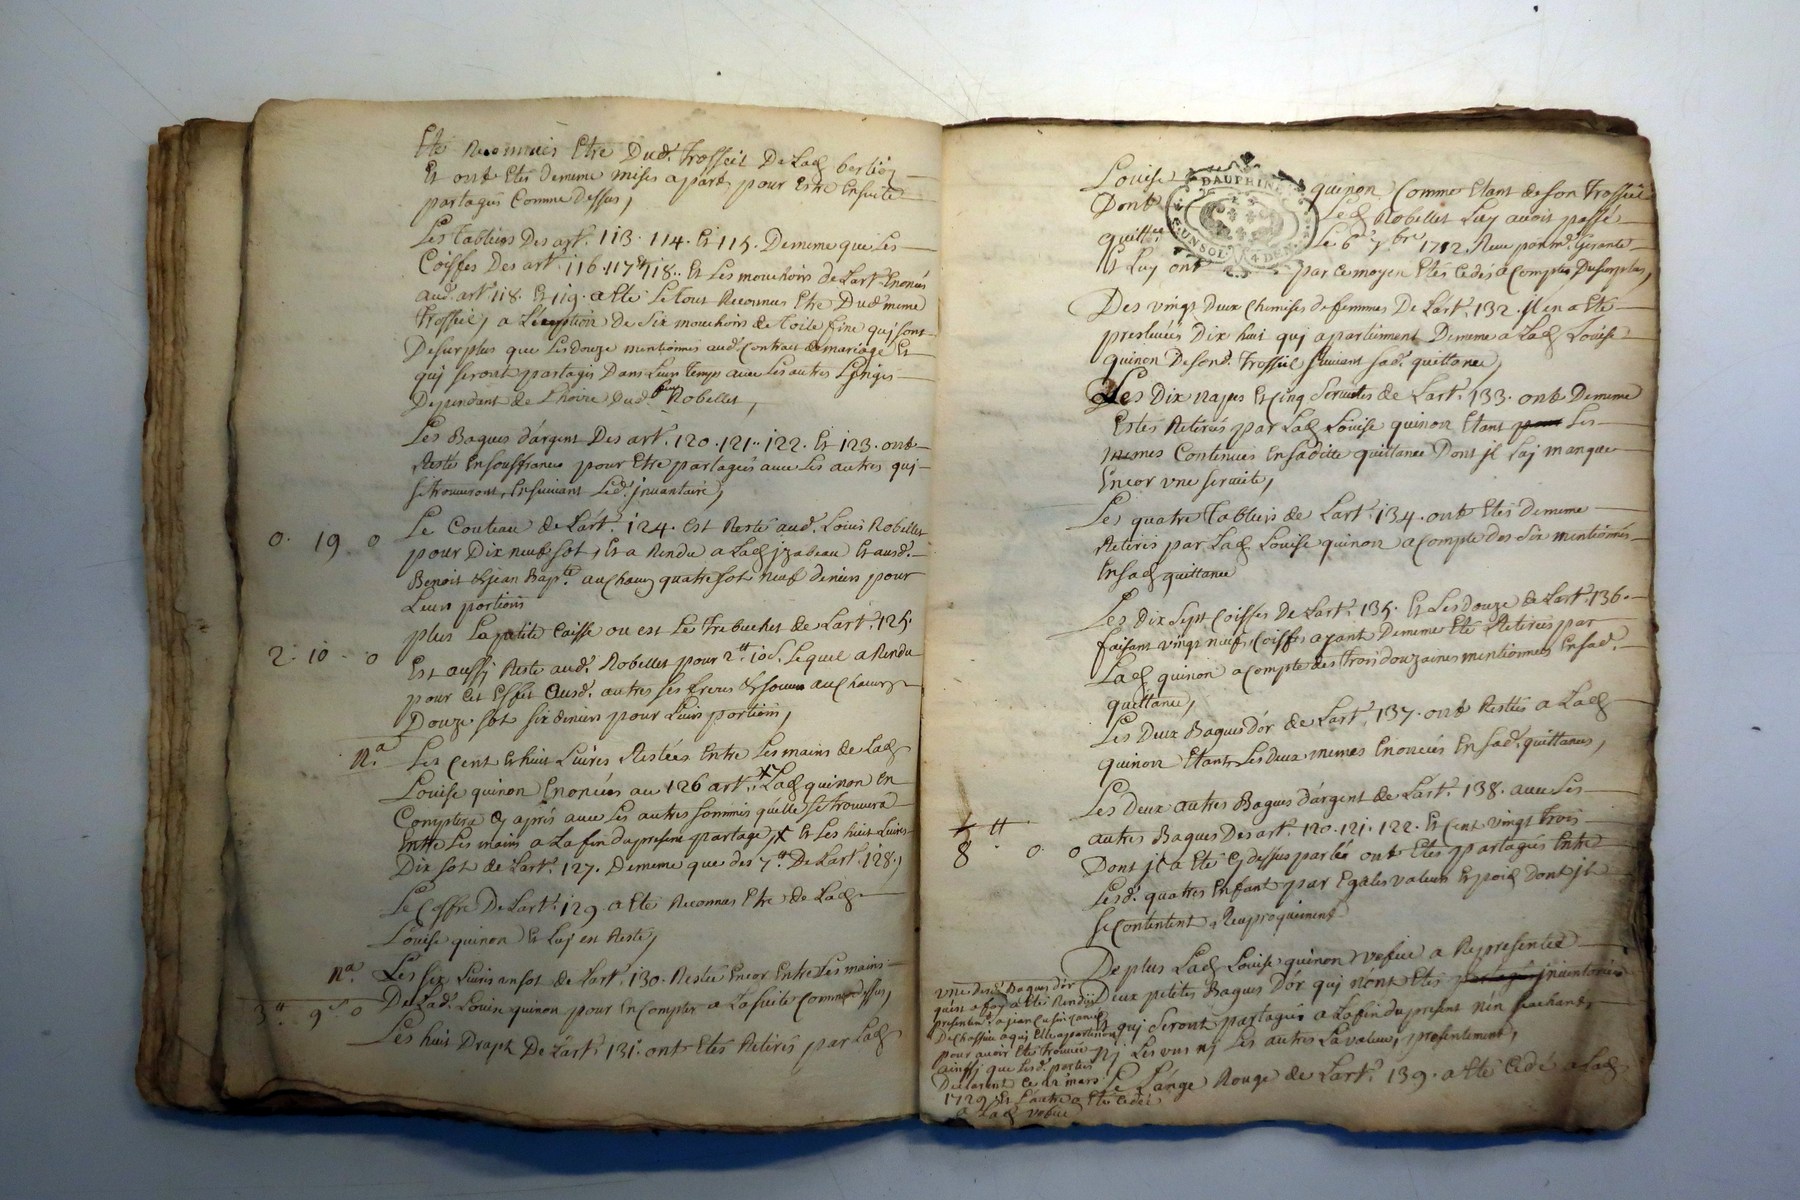 Eté Reconnues Etre Dud. Trosseil De Lad. berlioz
Et ont Etés demême mises apart pour Estre Ensuite
partagés Comme dessus,
Les tabliers Des art. 113. 114. Et 115. Demême que Les
Coiffes Des art. 116. 117 et 118.. Et Les mouchoirs de Lart. Enoncés
aud. art. 118. Et 119. a Eté Le tout Reconnus Etre Dud. meme
trosseil, a L'éception de Six mouchoirs de toile fine qui sont
Desurplus que Les douze mentionnés aud. Contrat de mariage Et
qui seront partagés Dans Leur temps avec Les autres Linges
Dependant de L'hoirie dud. feu Robellet,
Les Bagues d'argent Des art. 120. 121.. 122. Et 123. ont
Resté Ensouffrance pour Etre partagées avec Les autres qui
se trouveront, Ensuivant Led. jnvantaire,
0. 19 0
Le Couteau de L'art. 124. Est Resté aud. Louis Robellet
pour Dix neuf sol, Et a Rendu a Lad. jzabeau Et ausd.
Benoit & jean Bap.te au chacun quatre sol neuf deniers pour
Leurs portions
2. 10. 0
plus La petite Caisse ou est Le trebuchet de L'art. 125.
Est aussi Resté aud. Robellet pour 2 tt 10 s. Lequel a Rendu
pour Cet Effet Ausd. autres ses freres & soeurs au chacun
Douze sol six deniers pour Leurs portions,
N.a
Les Cent Et huit Livres Restées Entre Les mains de Lad.
Louise quinon Enoncées au 126 art. Lad. quinon En
Comptera Cy aprés avec Les autres sommes qu'elle se trouvera
Entre Les mains a La fin du present partage, Et Les huit Livres
Dix sol de L'art. 127. Demême que des 7 tt De L'art. 128.,
Le Coffre De L'art. 129 a Eté Reconnus Etre de Lad.
Louise quinon Et Luy en Resté,
N.a
Les six Livres un sol de L'art. 130. Restée Encor Entre Les mains
3 tt 9 s. 0
De Lad. Louise quinon pour En Compter a La suite Comme dessus,
Les huit Draps De L'art. 131. ont Etés Retirés par Lad.
DAUPHINE
UN SOL 4 DEN
Louise quinon Comme Etant de son trosseil
Dont Led. Robellet Luy avoit passé
quittce Le 6e 7bre 1712. Reçue par m.e Gerante
Et Luy ont par Ce moyen Etés Cedés a Compte Dusurplus,
Des vingt deux Chemises de femmes De L'art. 132. il en a Eté
prestevées Dix huit qui apartiennent Demême a Lad. Louise
quinon De sond. trosseil suivant sad. quittance,
Les Dix napes Et Cinq servietes de L'art. 133. ont Demême
Estés Retirées par Lad. Louise quinon Etant Les
mêmes Contenues En sadite quittance Dont jl Luj manque
Encor une serviete,
Les quatre tabliers de L'art. 134. ont Etés demême
Retirés par Lad. Louise quinon a Compte des Six mentionnés
En sad. quittance
Les Dix Sept Coiffes De L'art. 135. Et Les douze de L'art. 136.
faisant vingt neuf Coiffes ayant Demême Eté Retirées par
Lad. quinon a Compte des trois douzaines mentionnées En sad.
quittance,
Les Deux Bagues d'or de L'art. 137. ont Restés a Lad.
quinon Etant Les deux mêmes Enoncées En sad. quittance,
Les Deux autres Bagues d'argent de L'art. 138. avec Les
8. 0. 0
autres Bagues Des art. 120. 121. 122. Et Cent vingt trois
Dont jl a Eté Cy dessus parlée ont Etés partagées Entre
Lesd. quatres Enfant par Egales valeur Et poid dont jls
se Contentent, Reciproquement
De plus Lad. Louise quinon vefue a Representée
Deux petites Bagues D'or qui n'ont Etés jnventoriées
qui seront partagées a La fin du present n'en sachant,
ny Les uns ny Les autres La valeur, presentement,
Le Lange Rouge de L'art. 139. a Eté Cedé a Lad.
vne desd. Bagues d'or
a Eté Rendue
present.t a jean
De a qui Elle apartenoit
pour avoir Eté trouvée
ainsy que Lesd. parties
Declarent Ce 12 mars
1729 Et L'autre a Eté Cedée
a Lad. vefue